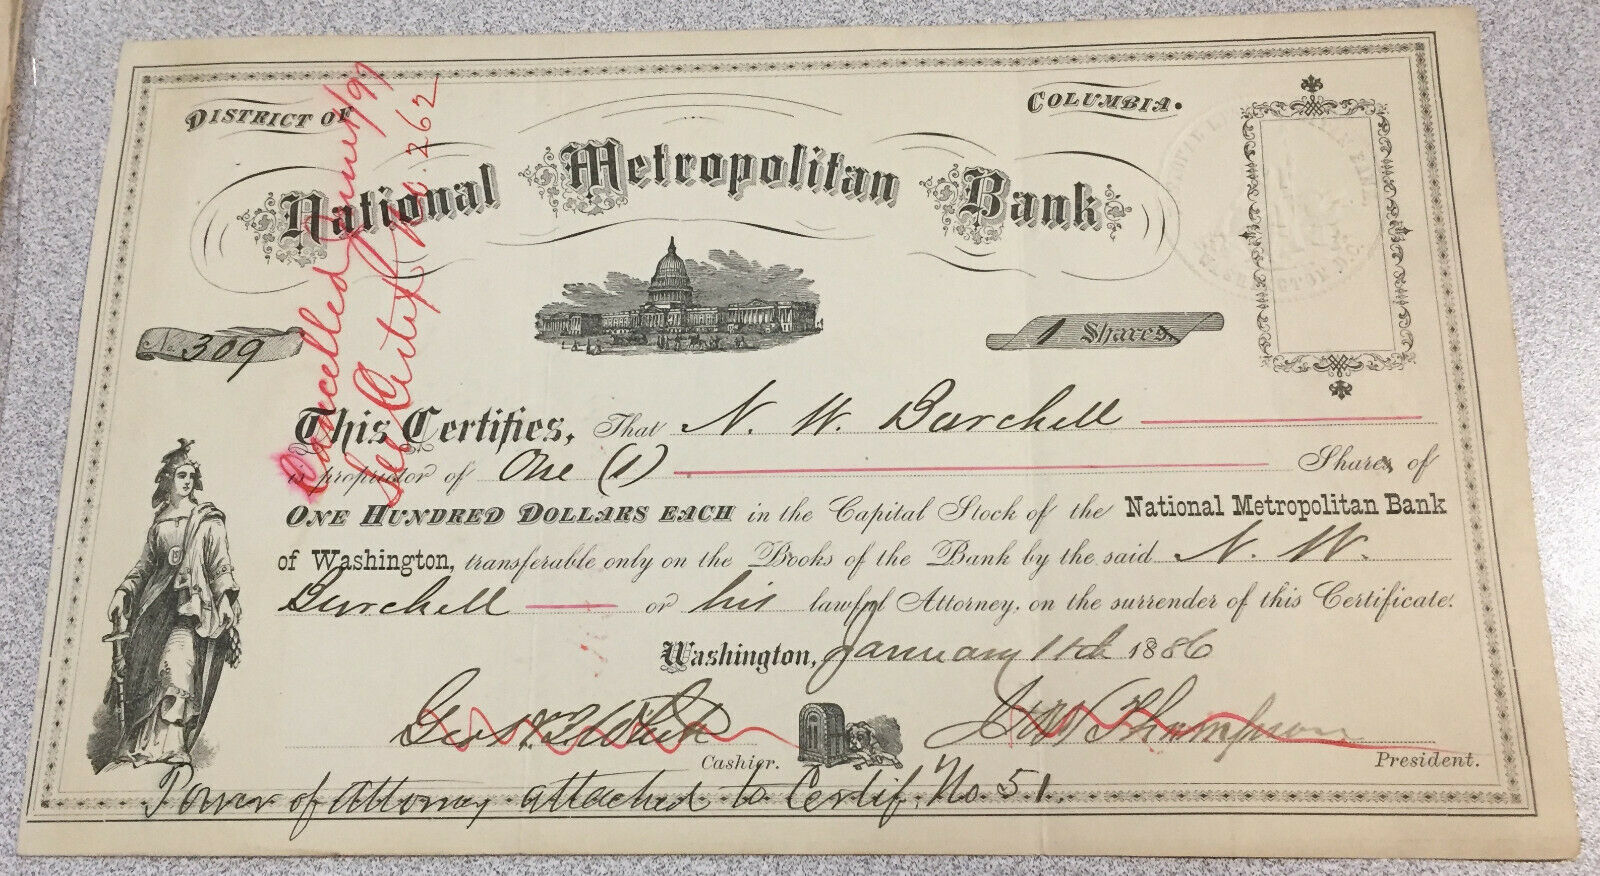 DISTRICT OF COLUMBIA.
National Metropolitan Bank
No. 309
1 Shares.
This Certifies, That N. W. Burchell
is proprietor of One (1) Shares of
ONE HUNDRED DOLLARS EACH in the Capital Stock of the National Metropolitan Bank
of Washington, transferable only on the Books of the Bank by the said N. W.
Burchell or his lawful Attorney, on the surrender of this Certificate.
Washington, January 11th 1886
Geo. H. B. White
Cashier.
Jno W Thompson
President.
Power of Attorney attached to Certif. No. 51.
Cancelled
See Certif No. 262
WASHINGTON D.C.